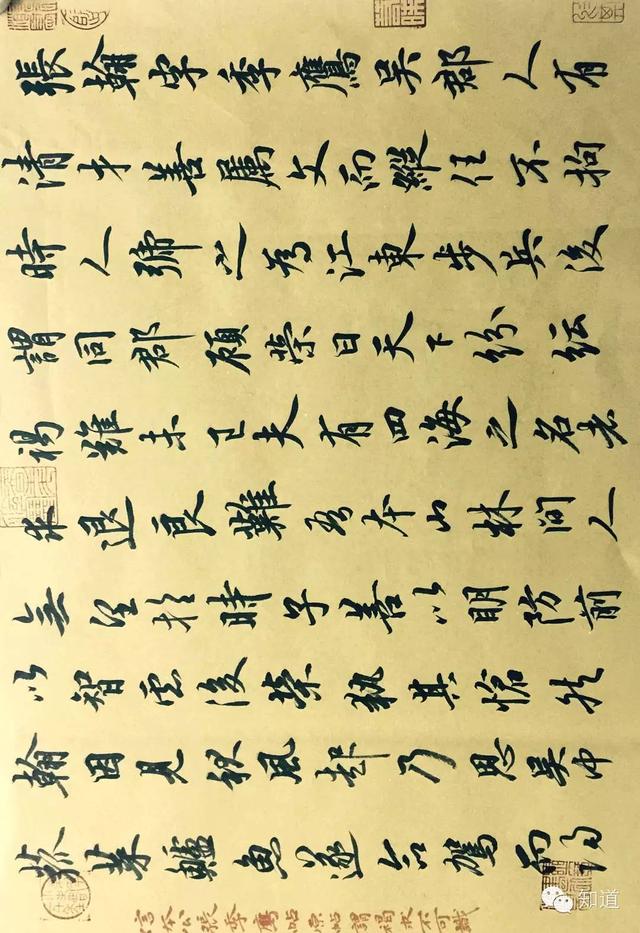 張翰字季鷹吳郡人有
清才善屬文而縱任不拘
時人號之為江東步兵後
謂同郡顧榮曰天下紛紜
禍難未已夫有四海之名者
求退良難吾本山林間人
無望於時子善以明防前
以智慮後榮執其愴然
翰因見秋風起乃思吳中
菰菜鱸魚遂命駕而歸
公張季鷹帖原帖謂禍求不可識
知道